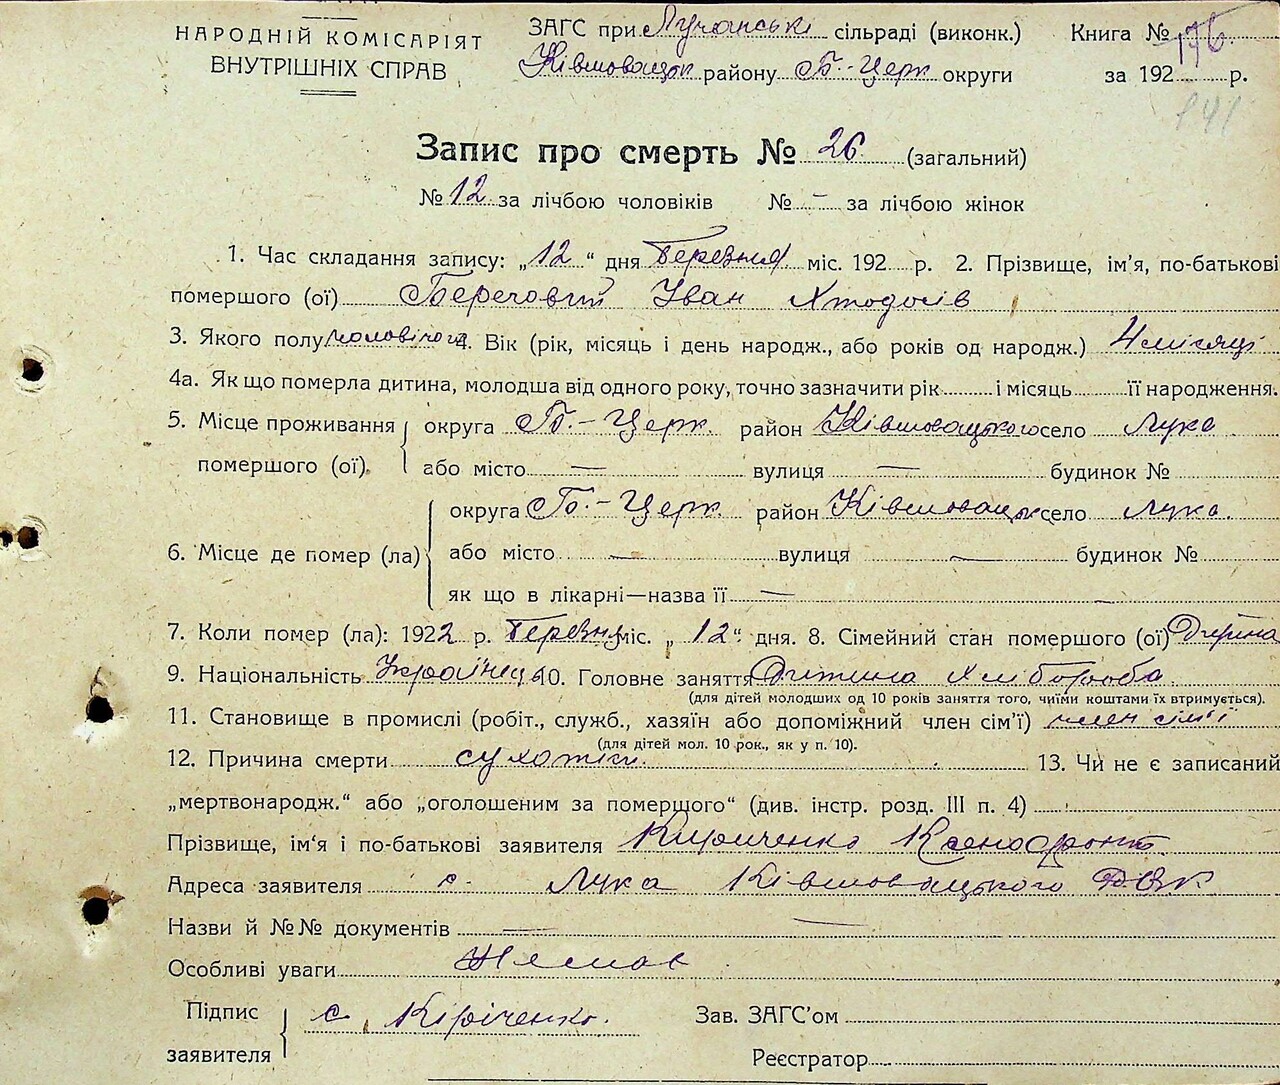 НАРОДНІЙ КОМІСАРІЯТ
ВНУТРІШНІХ СПРАВ
ЗАГС при Лучанські сільраді (виконк.) Книга № 176.
Ківшовацьк району Б.-Церк округи за 192 р.
141
Запис про смерть № 26 (загальний)
№ 12 за лічбою чоловіків № – за лічбою жінок
1. Час складання запису: „12“ дня Березня міс. 192 р. 2. Прізвище, ім'я, по-батькові
помершого (ої) Іван
3. Якого полу чоловічого 4. Вік (рік, місяць і день народж., або років од народж.) 4 місяці
4а. Як що померла дитина, молодша від одного року, точно зазначити рік і місяць її народження.
5. Місце проживання округа Б.-Церк. район Ківшовацького село Лука
помершого (ої). або місто — вулиця — будинок №
округа Б.-Церк. район Ківшовацьк село Лука.
6. Місце де помер (ла) або місто — вулиця — будинок №
як що в лікарні—назва її —
7. Коли помер (ла): 1922 р. Березня міс. „12“ дня. 8. Сімейний стан помершого (ої) Дитина
9. Національність Українець 10. Головне заняття Дитина Хлібороба
(для дітей молодших од 10 років заняття того, чиїми коштами їх втримується).
11. Становище в промислі (робіт., служб., хазяїн або допоміжний член сім'ї) член сім'ї
(для дітей мол. 10 рок., як у п. 10).
12. Причина смерти сухоти 13. Чи не є записаний
„мертвонародж.“ або „оголошеним за померщого“ (див. інстр. розд. III п. 4)
Прізвище, ім'я і по-батькові заявителя Кириченко Ксенофонт
Адреса заявителя с. Лука Ківшовацького
Назви й №№ документів — —
Особливі уваги Немає
Підпис
заявителя с. Кіріченко.
Зав. ЗАГС'ом
Реєстратор